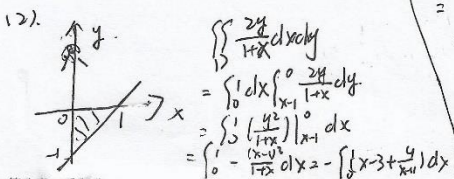 (2).
y
0
1
x
-1
∬_D 2y/(1+x) dxdy
= ∫_0^1 dx ∫_{x-1}^0 2y/(1+x) dy
= ∫_0^1 (y²/(1+x))|_{x-1}^0 dx
= ∫_0^1 -(x-1)²/(1+x) dx = -∫_0^1 (x-3+4/(x+1)) dx
=